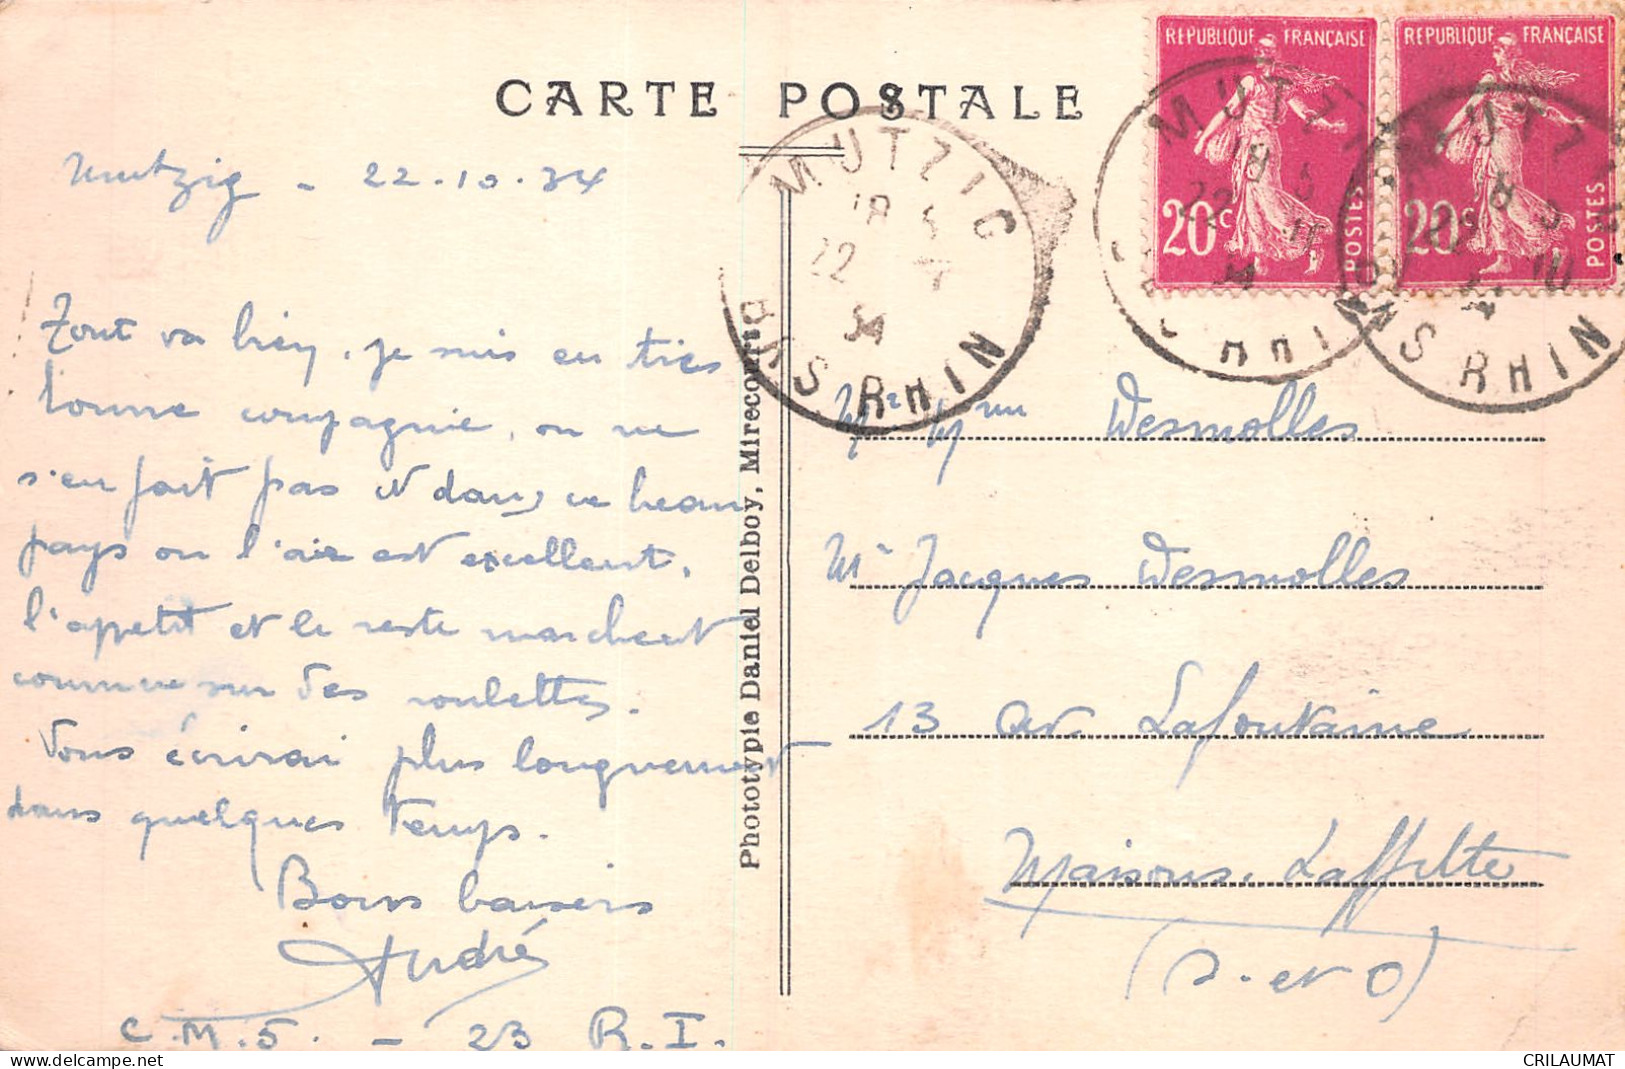 CARTE POSTALE
Mutzig - 22.10.34
Tout va bien, je suis en très
bonne compagnie, on ne
s'en fait pas et dans ce beau
pays où l'air est excellent,
l'appetit et le reste marchent
comme sur des roulettes.
Vous écrirai plus longuement
dans quelques temps.
Bons baisers
André
C.M.5. - 23 R.I.
Phototypie Daniel Delboy, Mirecourt
MUTZIG
18
22
34
BAS RHIN
REPUBLIQUE FRANÇAISE
20c
POSTES
MUTZIG
18
22
34
RHIN
REPUBLIQUE FRANÇAISE
20c
POSTES
MUTZIG
18
34
BAS RHIN
Mr Mme Desmolles
Mr Jacques Desmolles
13 Av Lafontaine
Maisons-Laffitte
(S.et O)
CRILAUMAT